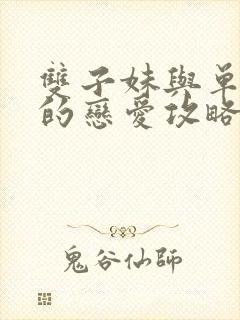 雙子妹與單
的戀愛攻略
鬼谷仙師